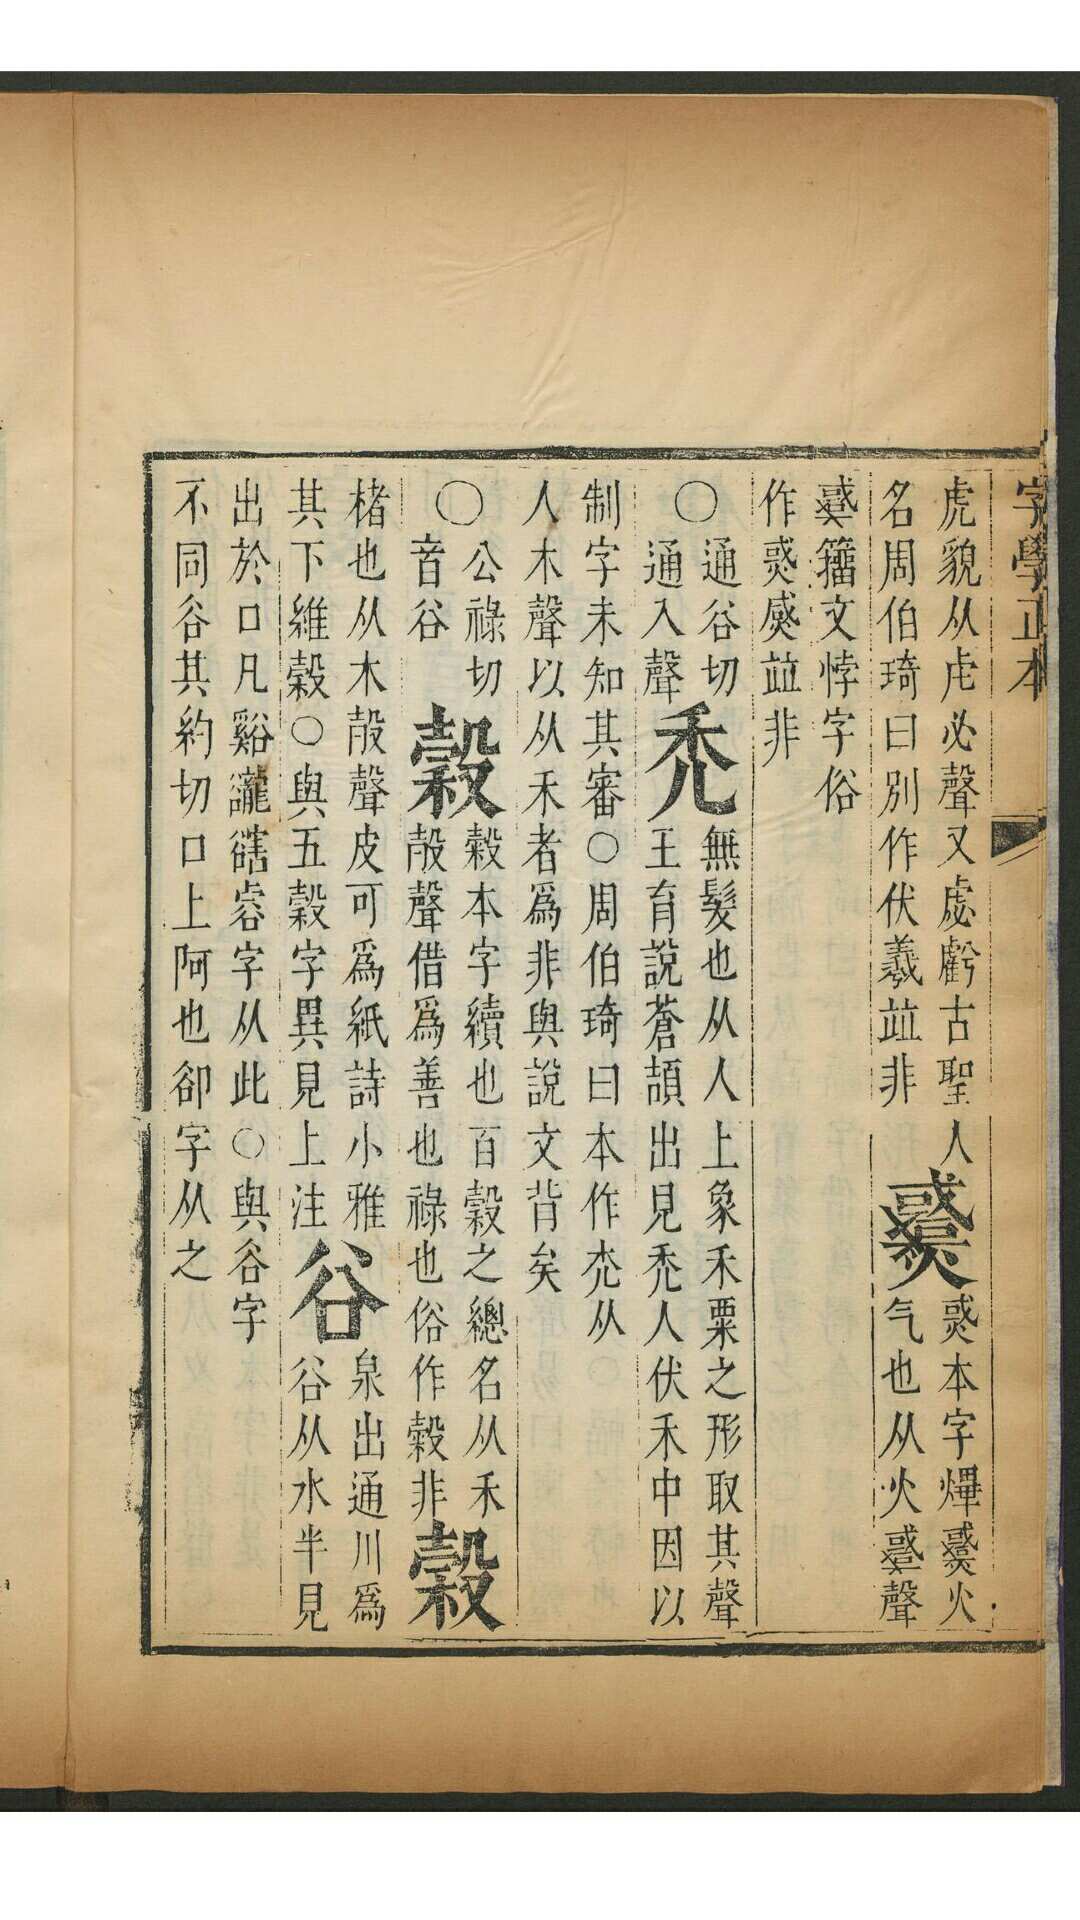 字學正本
虎貌从虍必聲又處虧古聖人
名周伯琦曰別作伏羲並非
㷼本字熚㷼火
气也从火聲
籒文悖字俗
作並非
〇通谷切
通入聲
禿
無髮也从人上象禾粟之形取其聲
王育說蒼頡出見禿人伏禾中因以
制字未知其審〇周伯琦曰本作禿从
人木聲以从禾者爲非與說文背矣
〇公祿切
音谷
榖
榖本字續也百榖之總名从禾
㱿聲借爲善也祿也俗作穀非
榖
楮也从木㱿聲皮可爲紙詩小雅
其下維榖〇與五榖字異見上注
谷
泉出通川爲
谷从水半見
出於口凡谿豅䜭㕡字从此〇與谷字
不同谷其約切口上阿也卻字从之